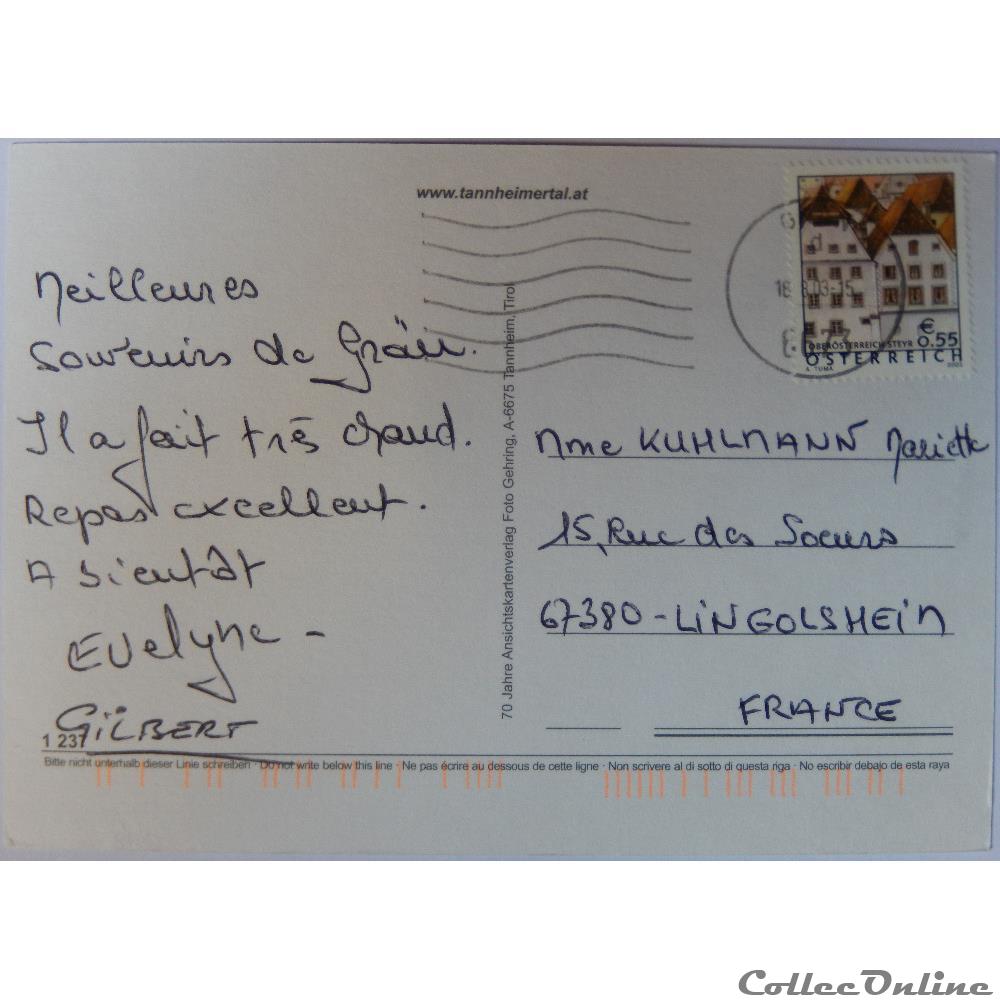 www.tannheimertal.at
Meilleures
Souvenirs de Grän.
Il a fait très chaud.
Repas excellent.
A bientôt
Evelyne -
GILBERT
1 237
70 Jahre Ansichtskartenverlag Foto Gehring, A-6675 Tannheim, Tirol
€ 0.55
OBERÖSTERREICH STEYR
ÖSTERREICH
A. TUMA
Mme KUHLMANN Mariette
15, Rue des Soeurs
67380 - LINGOLSHEIM
FRANCE
Bitte nicht unterhalb dieser Linie schreiben · Do not write below this line · Ne pas écrire au dessous de cette ligne · Non scrivere al di sotto di questa riga · No escribir debajo de esta raya
CollecOnline